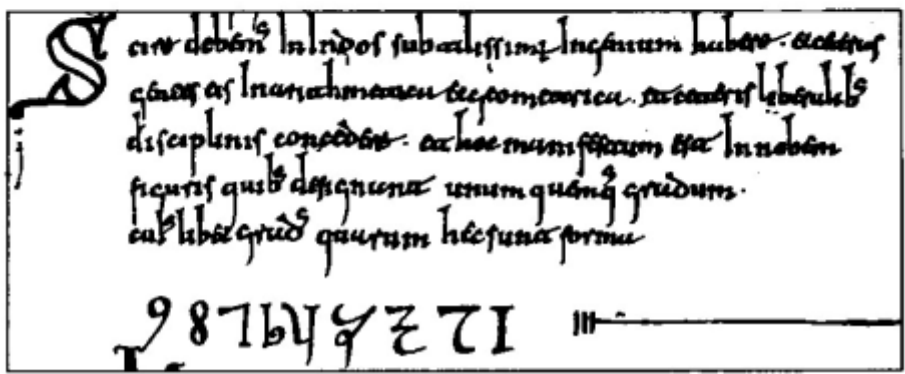 Scire debemˢ In Indos subtilissimum Ingenium habere. et ceteras
gentes eis In arithmetica et geometrica. et ceteris liberalibˢ
disciplinis concedere. et hoc manifestum est In nobem
figuris quibˢ designant unumquemqˢ gradum.
cuiˢlibet gradˢ quarum hec sunt forma
9 8 7 6 5 4 3 2 1